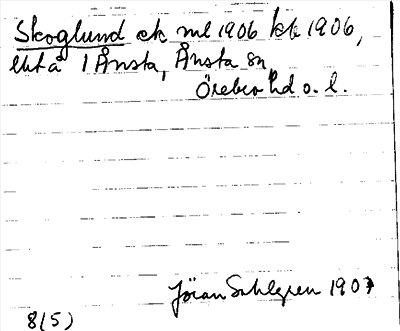 Skoglund ek ml 1906 kb 1906,
utå 1 Ånsta, Ånsta sn
Örebro hd o. l.
Jöran Sahlgren 1907
8(5)